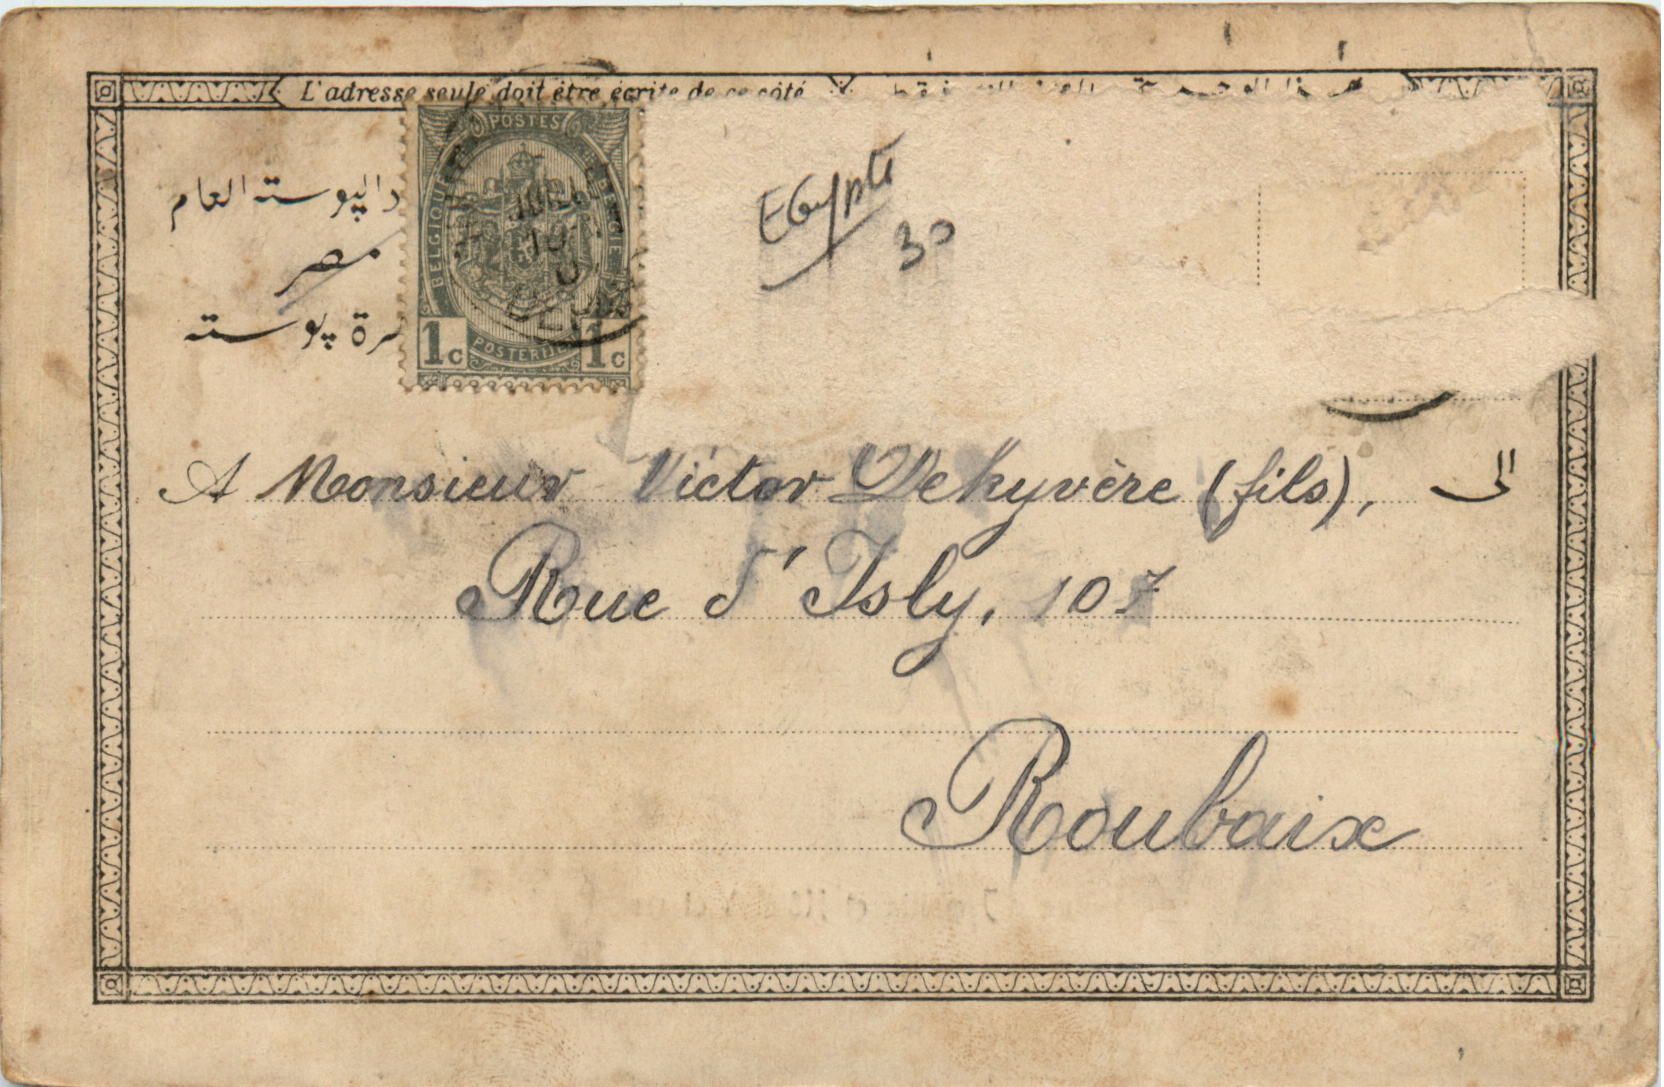 L'adresse seule doit être écrite de ce côté
POSTES
BELGIQUE
BELGIE
1c POSTERIJEN 1c
البوسته العام
مصر
پوسته
Egypte
30
A Monsieur Victor Dekyvère (fils), الى
Rue d'Isly, 107
Roubaix